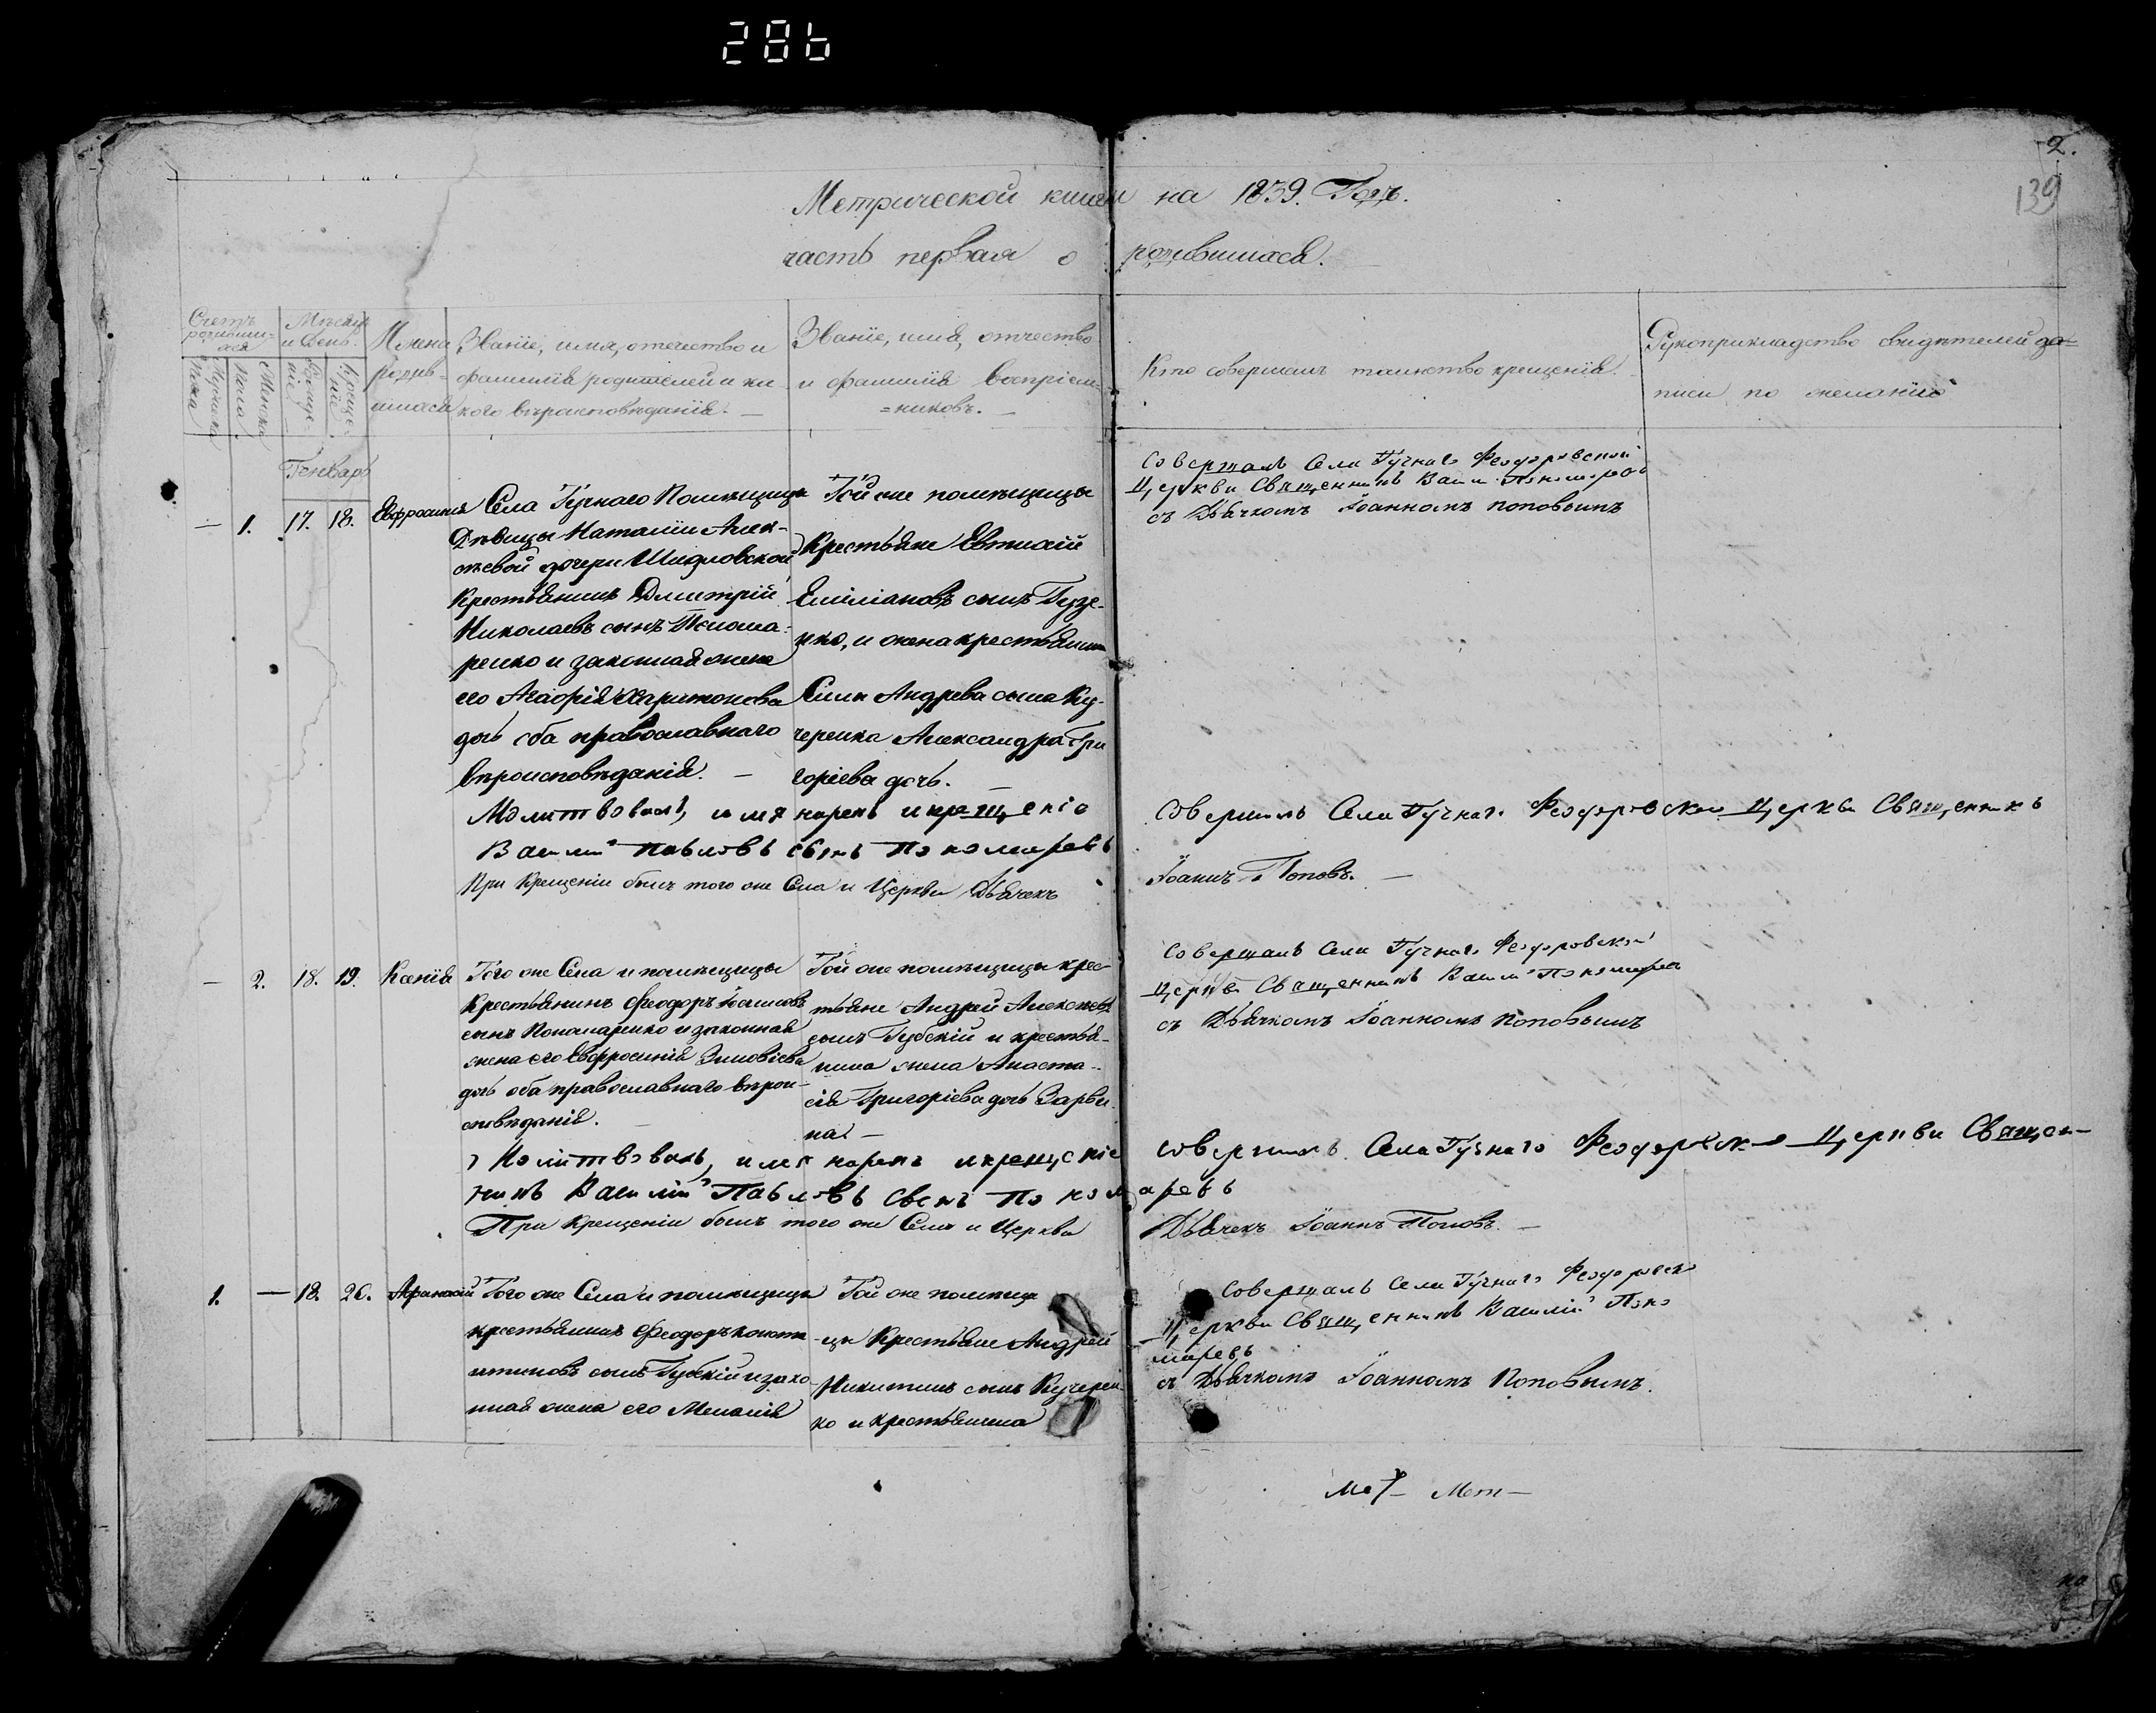 286
2.
139
Метрической книги на 1839. Годъ.
часть первая о родившихся.
Счетъ родивши-хся
Мѣсяцъ и День.
Мужеска пола
Женска
Рожде-ніе
Креще-ніе
Имена родив-шихся
Званіе, имя, отечество и
фамилія родителей и ка-
кого вѣроисповѣданія. —
Званіе, имя, отчество
и фамилія воспріем-
=никовъ. —
Кто совершалъ таинство крещенія.
Рукоприкладство свидѣтелей за=
писи по желанію
Генварь
— 1. 17. 18. Евфросинія
Села Гучнаго Помѣщицы
Дѣвицы Наталіи Алек-
сѣевой дочери Шидловской
Крестьянинъ Дмитрій
Николаевъ сынъ
ренко и законная жена
его Агафія Харитонова
дочь оба православнаго
вѣроисповѣданія. —
Той же помѣщицы
Крестьяне Евтихій
Емиліановъ сынъ Гузе-
нко, и жена крестьянина
Симы Андреева сына Ку-
черенка Александра Гри
горіева дочь. —
Совершалъ Села Гучнаго Феодоровской
Церкви Священникъ Васи. Пономаре
съ Дьячкомъ Іоанномъ Поповымъ
Молитвовалъ, имя нарекъ и крещеніе совершилъ Села Гучнаго Феодоровской Церкви Священникъ
Василій Павловъ сынъ Пономаревъ
При Крещеніи былъ того же Села и Церкви Дьячекъ Іоаннъ Поповъ. —
— 2. 18. 19. Ксенія
Того же Села и помѣщицы
Крестьянинъ Феодоръ Іоанновъ
сынъ Пономаренко и законная
жена его Евфросинія Зиновіева
дочь оба православнаго вѣрои-
сповѣданія. —
Той же помѣщицы крес-
тьяне Андрей Алексѣевъ
сынъ Губскій и крестья-
нина жена Анаста-
сія Григоріева дочь Зарви.
на. —
Совершалъ Села Гучнаго Феодоровской
Церкви Священникъ Васил Пономарев
съ Дьячкомъ Іоанномъ Поповымъ
Молитвовалъ, имя нарекъ и крещеніе совершилъ Села Гучнаго Феодоровской Церкви Священ-
никъ Василій Павловъ сынъ Пономаревъ
При Крещеніи былъ того же Села и Церкви Дьячекъ Іоаннъ Поповъ. —
1. — 18. 26. Афанасій
Того же Села и помѣщицы
крестьянинъ Феодоръ Конста
нтиновъ сынъ Губскій и зако
нная жена его Меланія
Той же помѣщи
цы Крестьяне Андрей
Никитинъ сынъ Кучерен
ко и крестьянина
Совершалъ Села Гучнаго Феодоровск
Церкви Священникъ Василій Поно
маревъ
съ Дьячкомъ Іоанномъ Поповымъ.